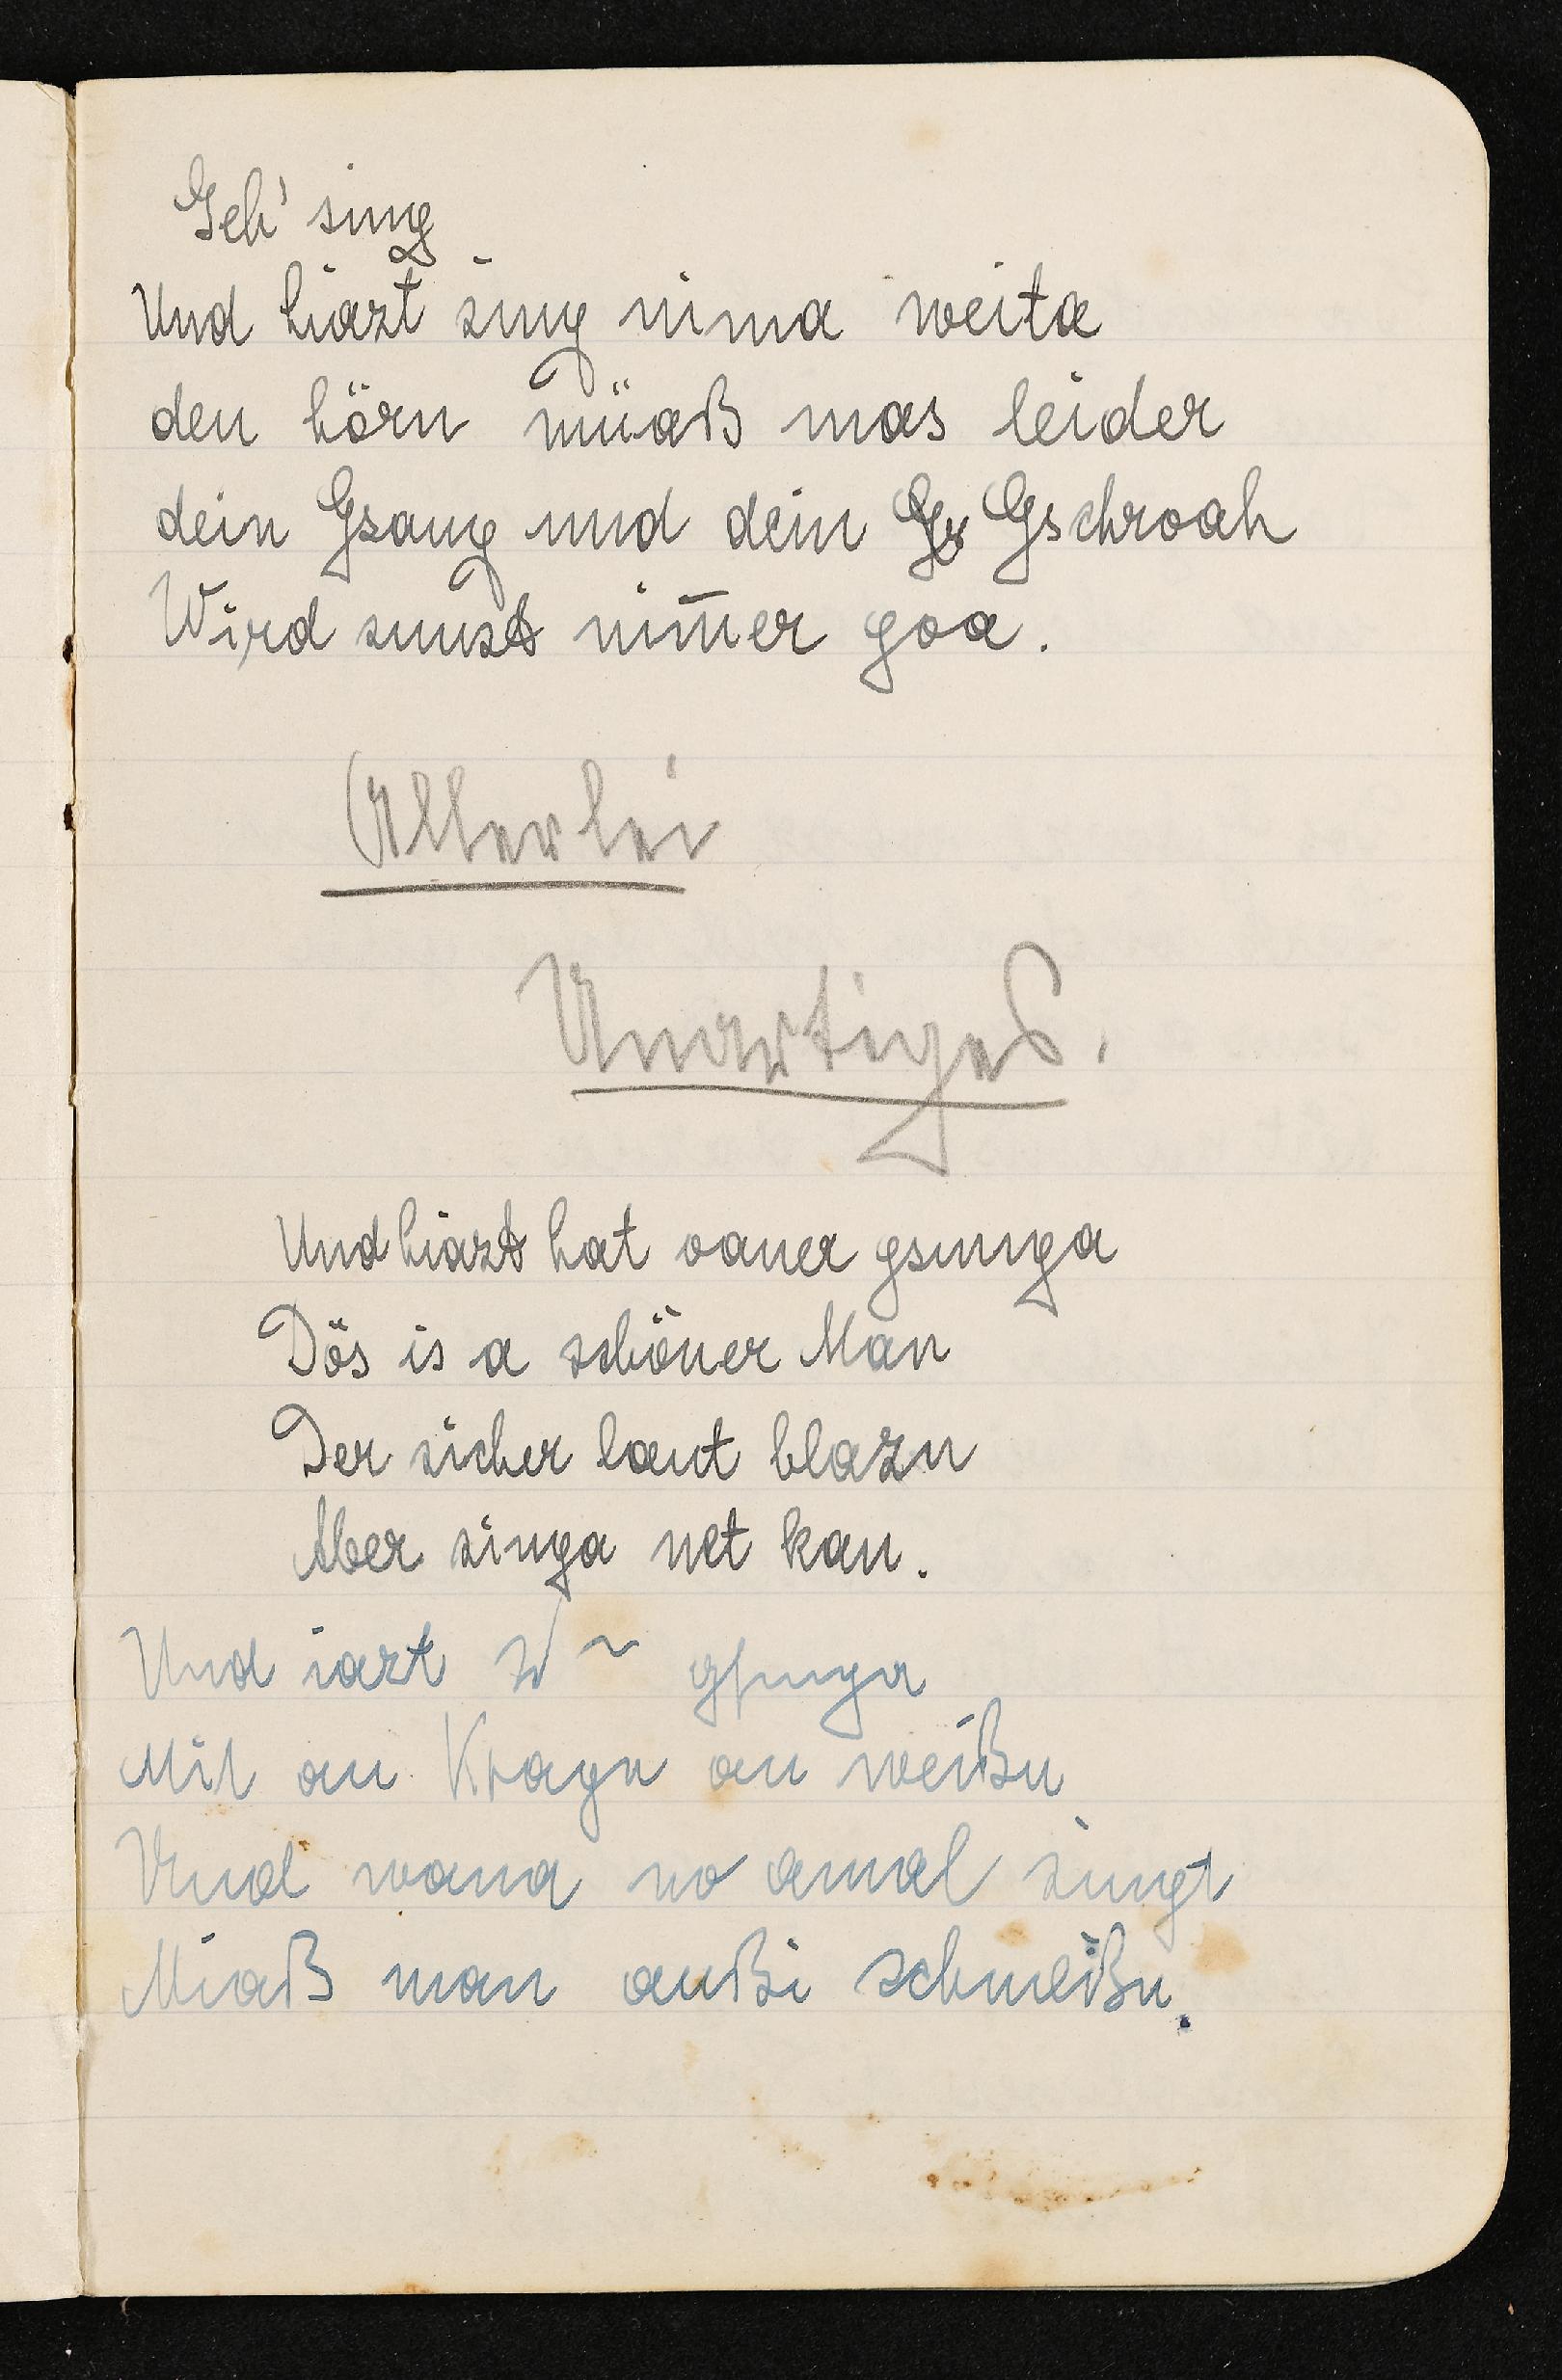 Geh' sing
Und hiazt sing nima weita
den hörn müaß mas leider
dein Gsang und dein Gs Gschroah
Wird sunst nim̄er goa.
Allerlei
Unartiges.
Und hiazt hat oaner gsunga
Dös is a schöner Man
Der sicher laut blazn
Aber singa net kan.
Und iazt gsunga
Mit an Kragn an weißn
Und wana no amal singt
Miaß man außi schmeißn.